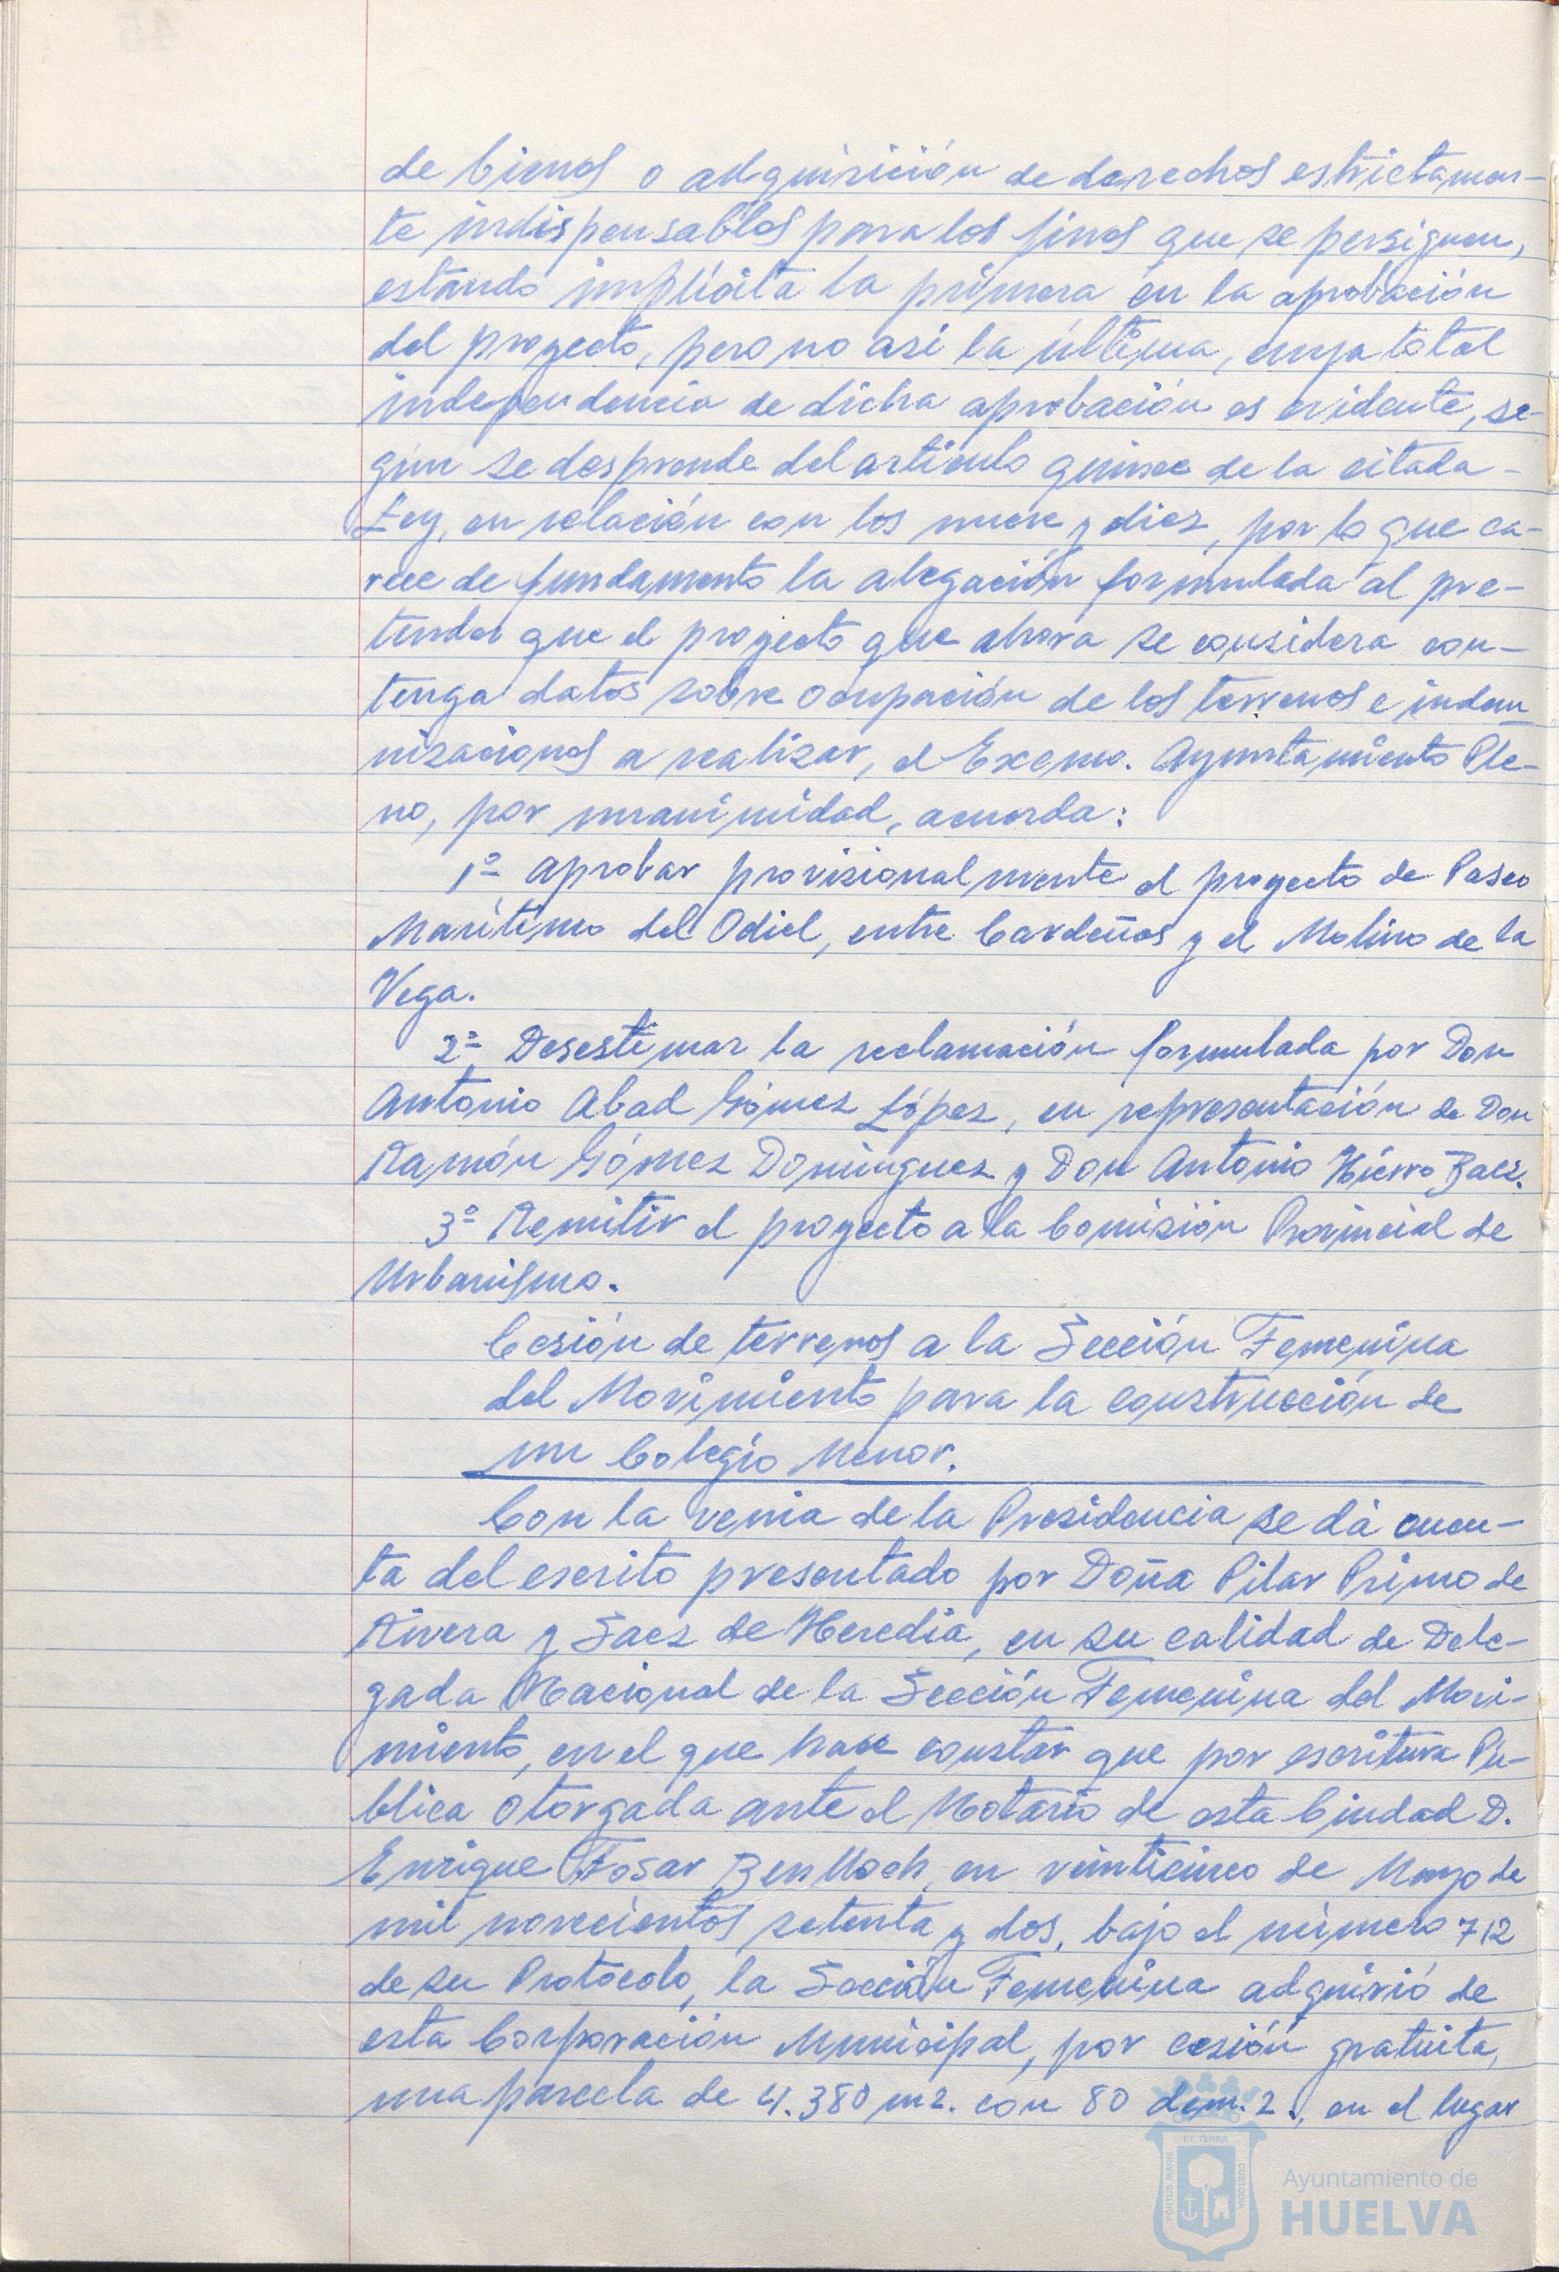 de bienes o adquisición de derechos estrictamen-
te indispensables para los fines que se persiguen,
estando implícita la primera en la aprobación
del proyecto, pero no así la última, cuya total
independencia de dicha aprobación es evidente, se-
gún se desprende del artículo quince de la citada
Ley, en relación con los nueve y diez, por lo que ca-
rece de fundamento la alegación formulada al pre-
tender que el proyecto que ahora se considera con-
tenga datos sobre ocupación de los terrenos e indem-
nizaciones a realizar, el Excmo. Ayuntamiento Ple-
no, por unanimidad, acuerda:
1º Aprobar provisionalmente el proyecto de Paseo
Marítimo del Odiel, entre Cardeñas y el Molino de la
Vega.
2º Desestimar la reclamación formulada por Don
Antonio Abad Gómez López, en representación de Don
Ramón Gómez Domínguez y Don Antonio Hierro Baez.
3º Remitir el proyecto a la Comisión Provincial de
Urbanismo.
Cesión de terrenos a la Sección Femenina
del Movimiento para la construcción de
un Colegio Menor.
Con la venia de la Presidencia se dá cuen-
ta del escrito presentado por Doña Pilar Primo de
Rivera y Saez de Heredia, en su calidad de Dele-
gada Nacional de la Sección Femenina del Movi-
miento, en el que hace constar que por escritura Pú-
blica otorgada ante el Notario de esta Ciudad D.
Enrique Fosar Benlloch, en veinticinco de Mayo de
mil novecientos setenta y dos, bajo el número 712
de su Protocolo, la Sección Femenina adquirió de
esta Corporación Municipal, por cesión gratuita,
una parcela de 4.380 m2. con 80 dcm. 2., en el lugar
PORTUS MARIS ET TERRA CUSTODIA
Ayuntamiento de
HUELVA